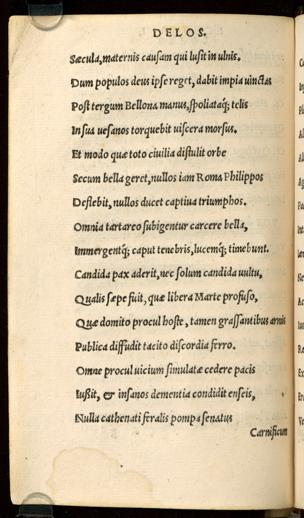 DELOS.
Sæcula, maternis causam qui lusit in ulnis.
Dum populos deus ipse reget, dabit impia uinctas
Post tergum Bellona manus, spoliataq; telis
In sua uesanos torquebit uiscera morsus.
Et modo quæ toto ciuilia distulit orbe
Secum bella geret, nullos iam Roma Philippos
Deflebit, nullos ducet captiua triumphos.
Omnia tartareo subigentur carcere bella,
Immergentq; caput tenebris, lucemq; timebunt.
Candida pax aderit, nec solum candida uultu,
Qualis sæpe fuit, quæ libera Marte profuso,
Quæ domito procul hoste, tamen grassantibus armis
Publica diffudit tacito discordia ferro.
Omne procul uicium simulatæ cedere pacis
Iußit, & insanos dementia condidit enseis,
Nulla cathenati feralis pompa senatus
Carnificum